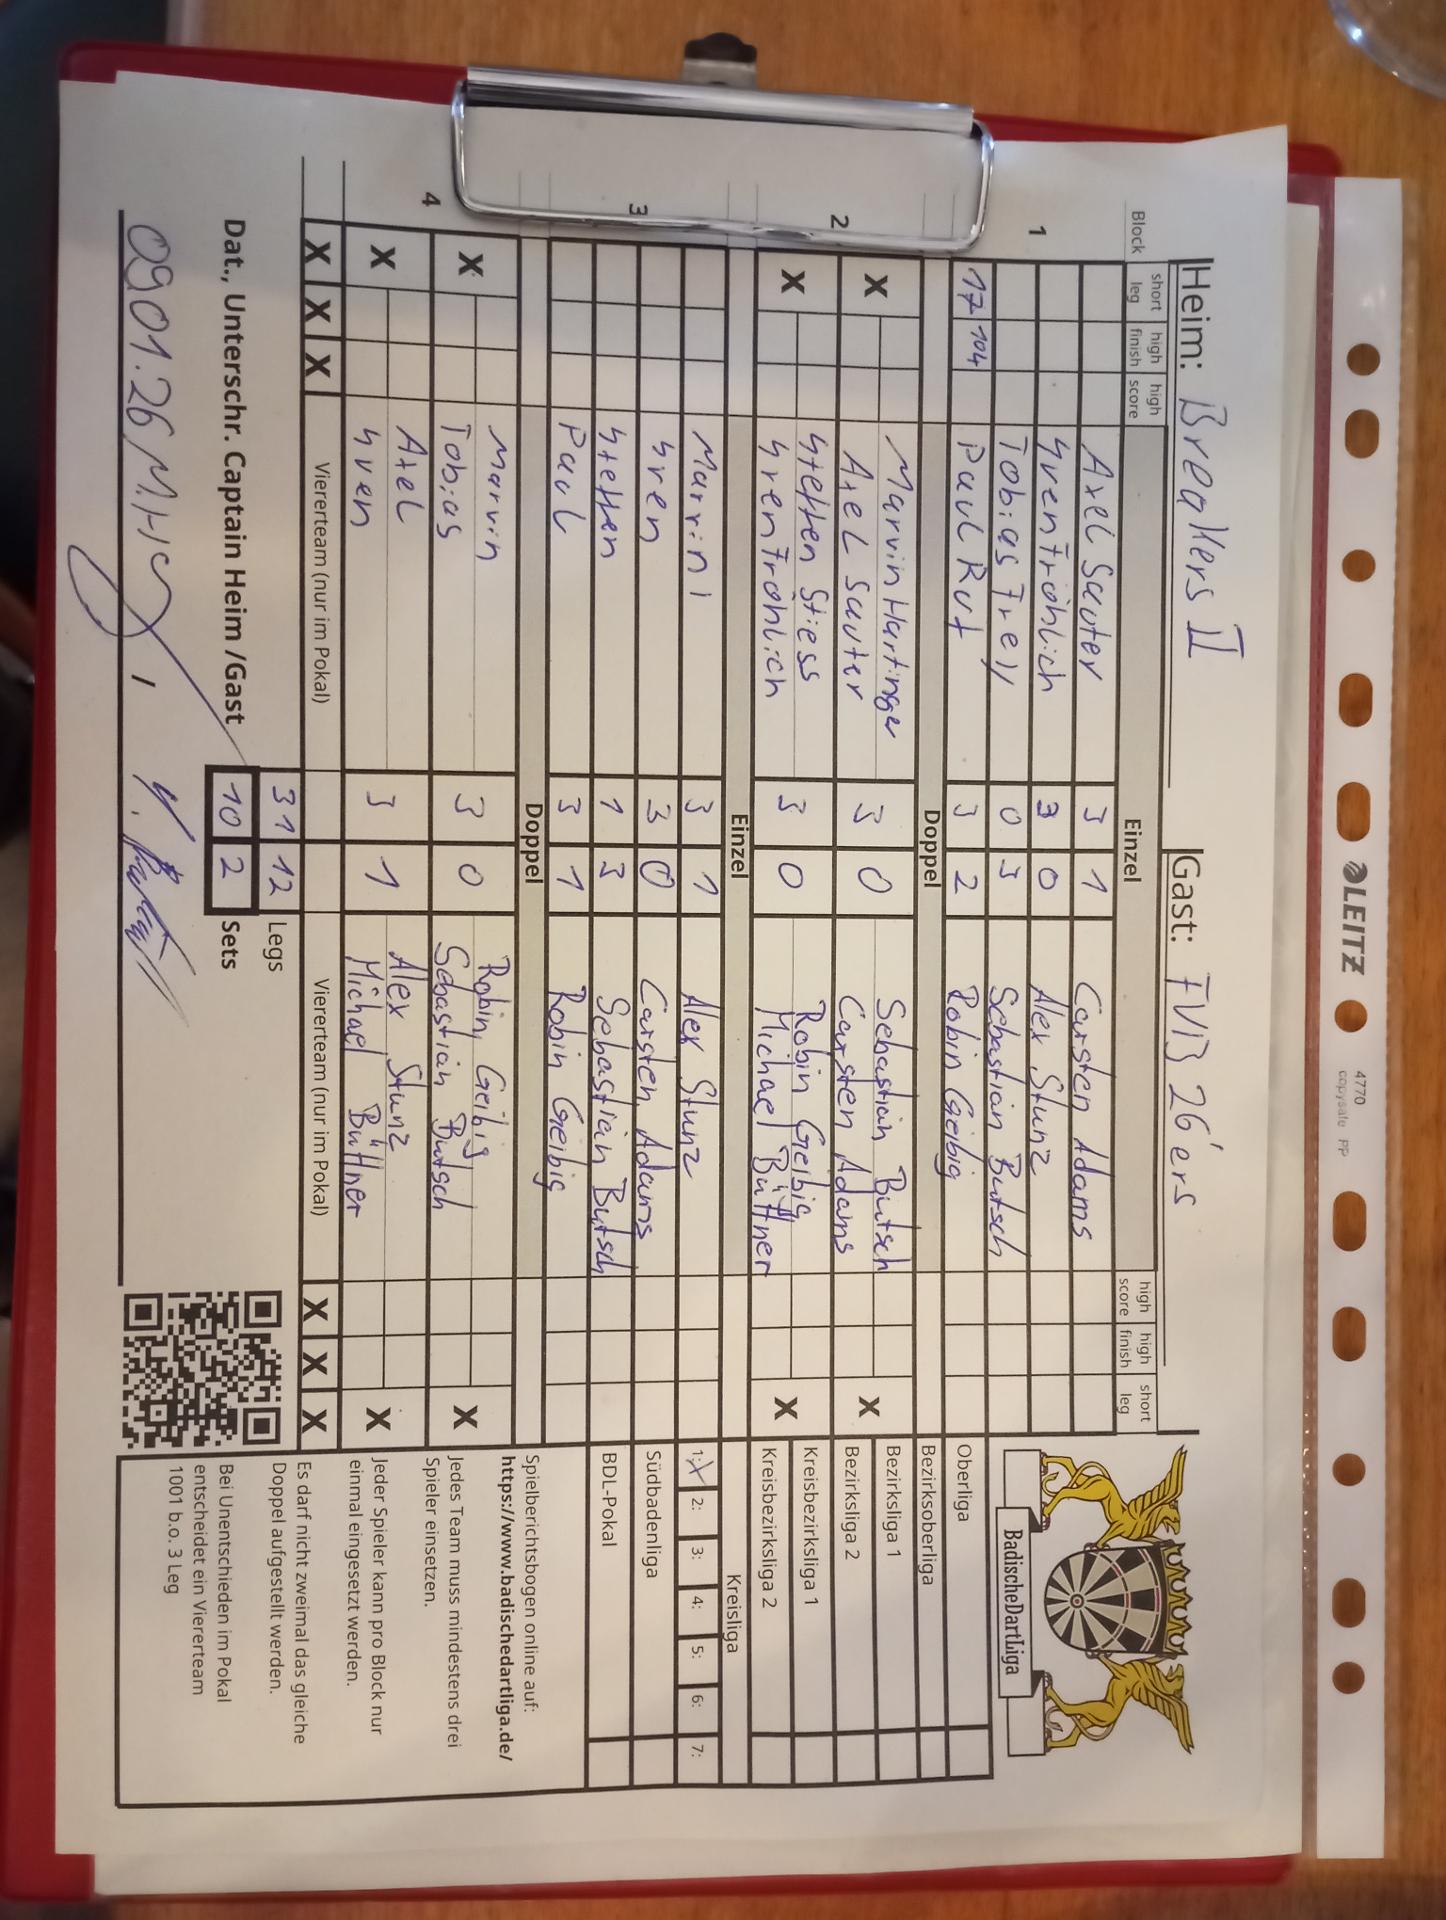 Heim: Breakers II Gast: FVB 26'ers
Block short leg high finish high score Einzel high score high finish short leg
1
Axel Sauter 3 1 Carsten Adams
Sven Fröhlich 3 0 Alex Stunz
Tobias Frey 0 3 Sebastian Butsch
17 104 Paul Rut 3 2 Robin Geibig
Doppel
2
X Marvin Hartinger 3 0 Sebastian Butsch X
Axel Sauter Carsten Adams
X Steffen Stiess 3 0 Robin Geibig X
Sven Fröhlich Michael Büttner
Einzel
3
Marvin 3 1 Alex Stunz
Sven 3 0 Carsten Adams
Steffen 1 3 Sebastian Butsch
Paul 3 1 Robin Geibig
Doppel
4
X Marvin 3 0 Robin Geibig X
Tobias Sebastian Butsch
X Axel 3 1 Alex Stunz X
Sven Michael Büttner
X X X Viererteam (nur im Pokal) Viererteam (nur im Pokal) X X X
31 12 Legs
Dat., Unterschr. Captain Heim /Gast 10 2 Sets
09.01.26
BadischeDartLiga
Oberliga
Bezirksoberliga
Bezirksliga 1
Bezirksliga 2
Kreisbezirksliga 1
Kreisbezirksliga 2
Kreisliga
1: X 2: 3: 4: 5: 6: 7:
Südbadenliga
BDL-Pokal
Spielberichtsbogen online auf:
https://www.badischedartliga.de/
Jedes Team muss mindestens drei
Spieler einsetzen.
Jeder Spieler kann pro Block nur
einmal eingesetzt werden.
Es darf nicht zweimal das gleiche
Doppel aufgestellt werden.
Bei Unentschieden im Pokal
entscheidet ein Viererteam
1001 b.o. 3 Leg
LEITZ
4770
copysafe PP